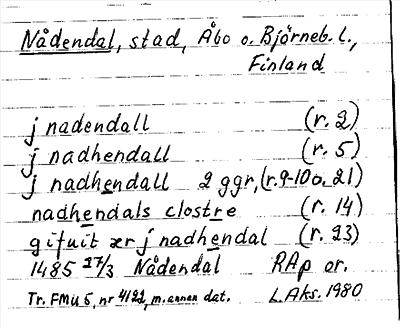 Nådendal, stad, Åbo o. Björneb. l.,
Finland
j nadendall (r. 2)
j nadhendall (r. 5)
j nadhendall 2 ggr, (r. 9-10 o. 21)
nadhendals clostre (r. 14)
gifuit ær j nadhendal (r. 23)
1485 27/3 Nådendal RAp or.
Tr. FMU 5, nr 4122, m. annan dat. L.Aks. 1980